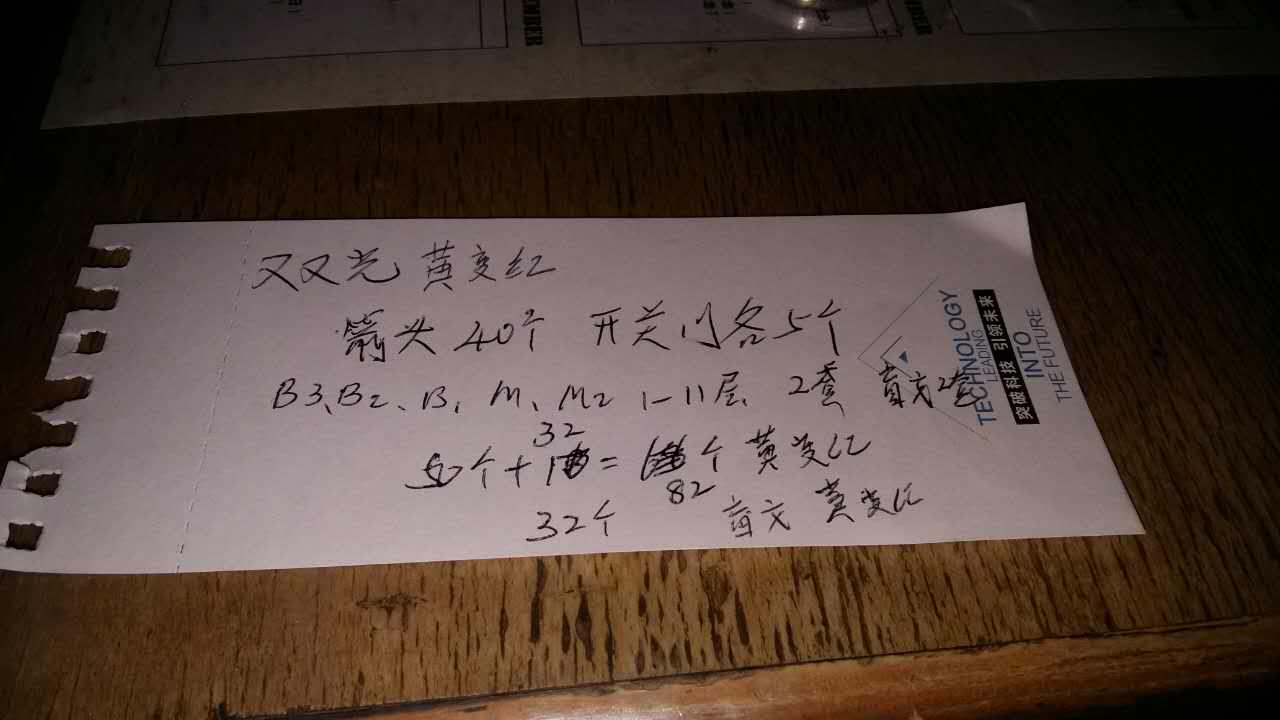 双光 黄变红
箭头 40个 开关门各5个
B3、B2、B1 M、M2 1-11层 2套 盲文2套
32
50个+ = 个 黄变红
82
32个 盲文 黄变红
TECHNOLOGY
LEADING
突破科技 引领未来
INTO
THE FUTURE